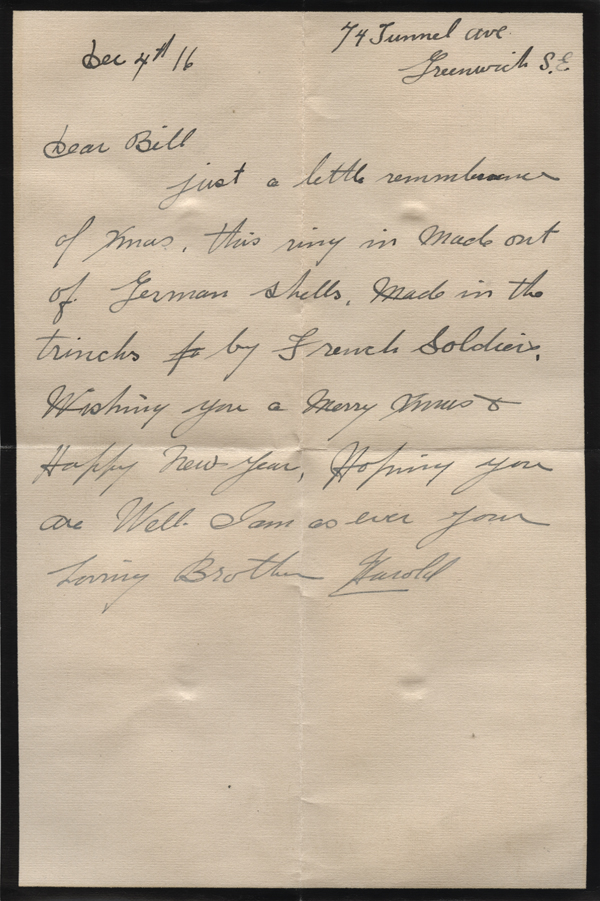 74 Tunnel ave
Dec 4th 16
Greenwich S.E
Dear Bill
just a little remembrance
of Xmas, this ring is Made out
of German Shells, Made in the
trinchs by French Soldiers.
Wishing you a Merry Xmas &
Happy New Year, Hoping you
are Well I am as ever your
Loving Brother Harold